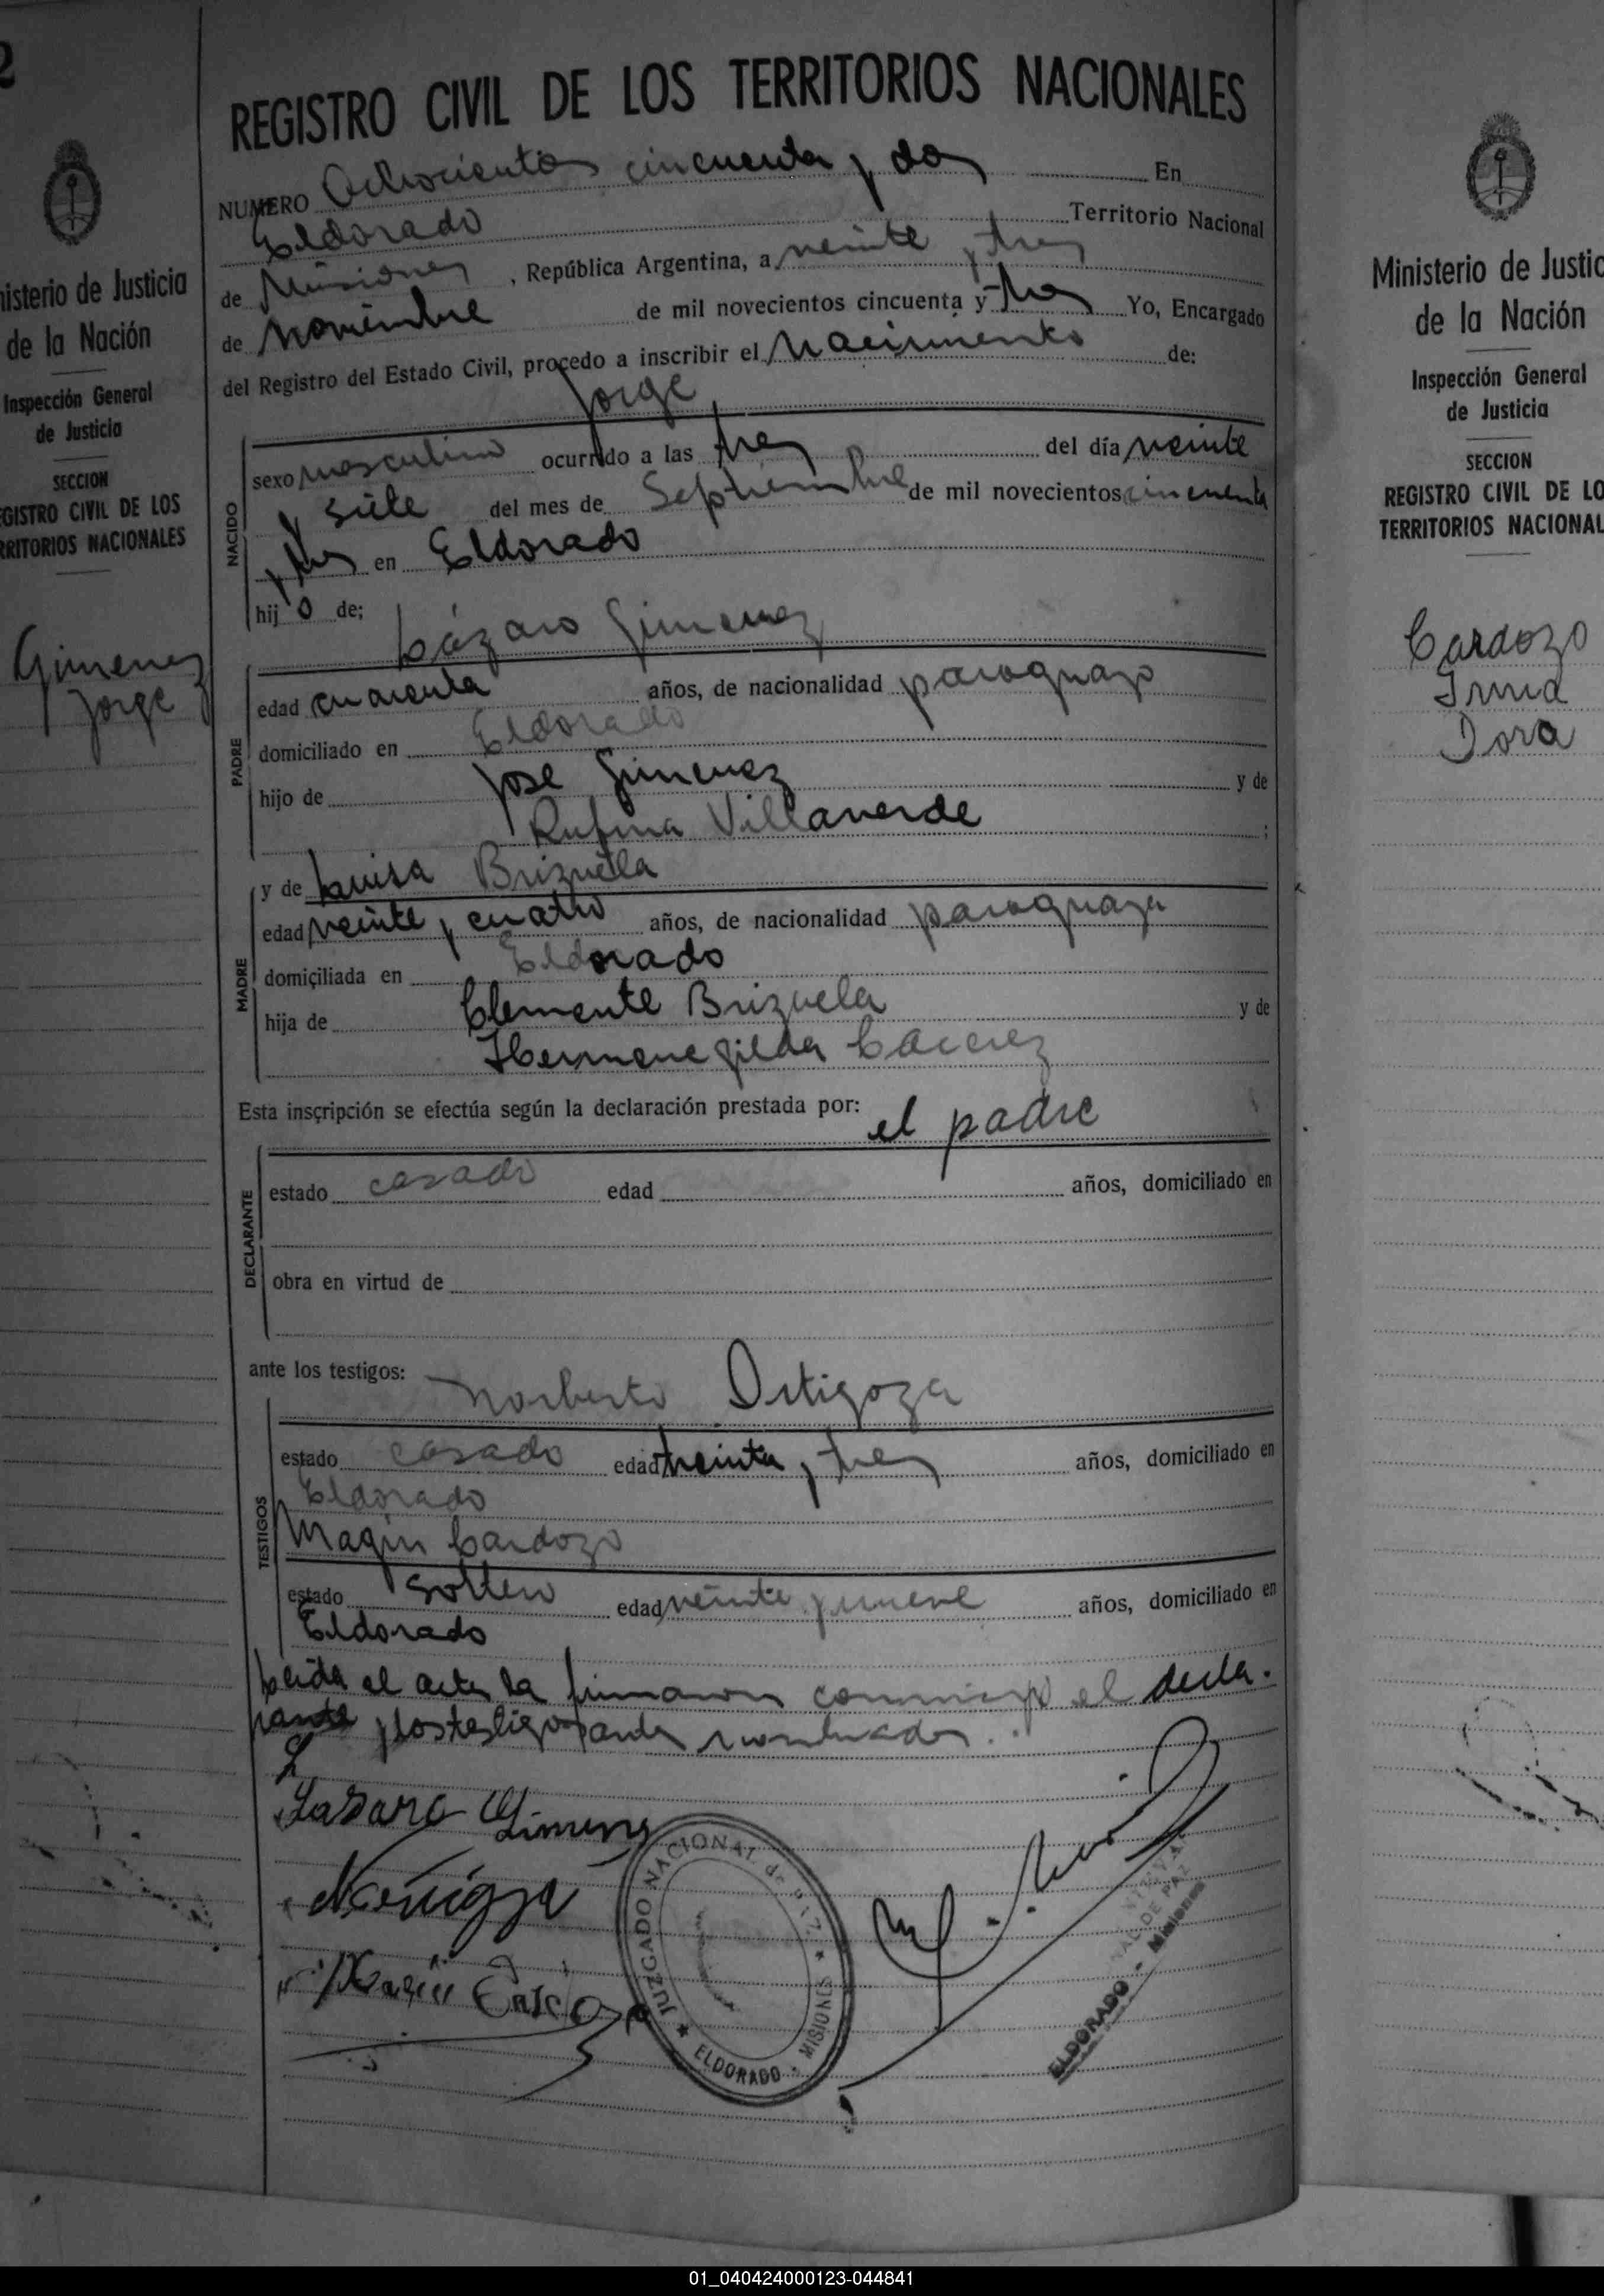 2
nisterio de Justicia
de la Nación
Inspección General
de Justicia
SECCION
GISTRO CIVIL DE LOS
RRITORIOS NACIONALES
Gimenez
Jorge
REGISTRO CIVIL DE LOS TERRITORIOS NACIONALES
NUMERO Ochocientos cincuenta y dos En
Eldorado Territorio Nacional
de Misiones, República Argentina, a veinte y tres
de noviembre de mil novecientos cincuenta y tres Yo, Encargado
del Registro del Estado Civil, procedo a inscribir el Nacimiento de:
Jorge
NACIDO
sexo masculino ocurrido a las tres del día veinte
y siete del mes de Septiembre de mil novecientos cincuenta
y tres en Eldorado
hijo de:
Lázaro Gimenez
PADRE
edad cuarenta años, de nacionalidad paraguayo
domiciliado en Eldorado
hijo de José Gimenez y de
Rufina Villaverde ;
y de Luisa Brizuela
MADRE
edad veinte y cuatro años, de nacionalidad paraguaya
domiciliada en Eldorado
hija de Clemente Brizuela y de
Hermenegilda Cacerez
Esta inscripción se efectúa según la declaración prestada por: el padre
DECLARANTE
estado casado edad años, domiciliado en
obra en virtud de
ante los testigos: Norberto Ortigoza
TESTIGOS
estado casado edad treinta y tres años, domiciliado en
Eldorado
Magin Cardozo
estado soltero edad veinte y nueve años, domiciliado en
Eldorado
Leida el acta la firmaron conmigo el decla-
rante y los testigos antes nombrados.
Lasaro Gimenez
JUZGADO NACIONAL de PAZ
ELDORADO - MISIONES
ELDORADO - Misiones
Ministerio de Justic
de la Nación
Inspección General
de Justicia
SECCION
REGISTRO CIVIL DE LO
TERRITORIOS NACIONAL
Cardozo
Irma
Dora
01_040424000123-044841